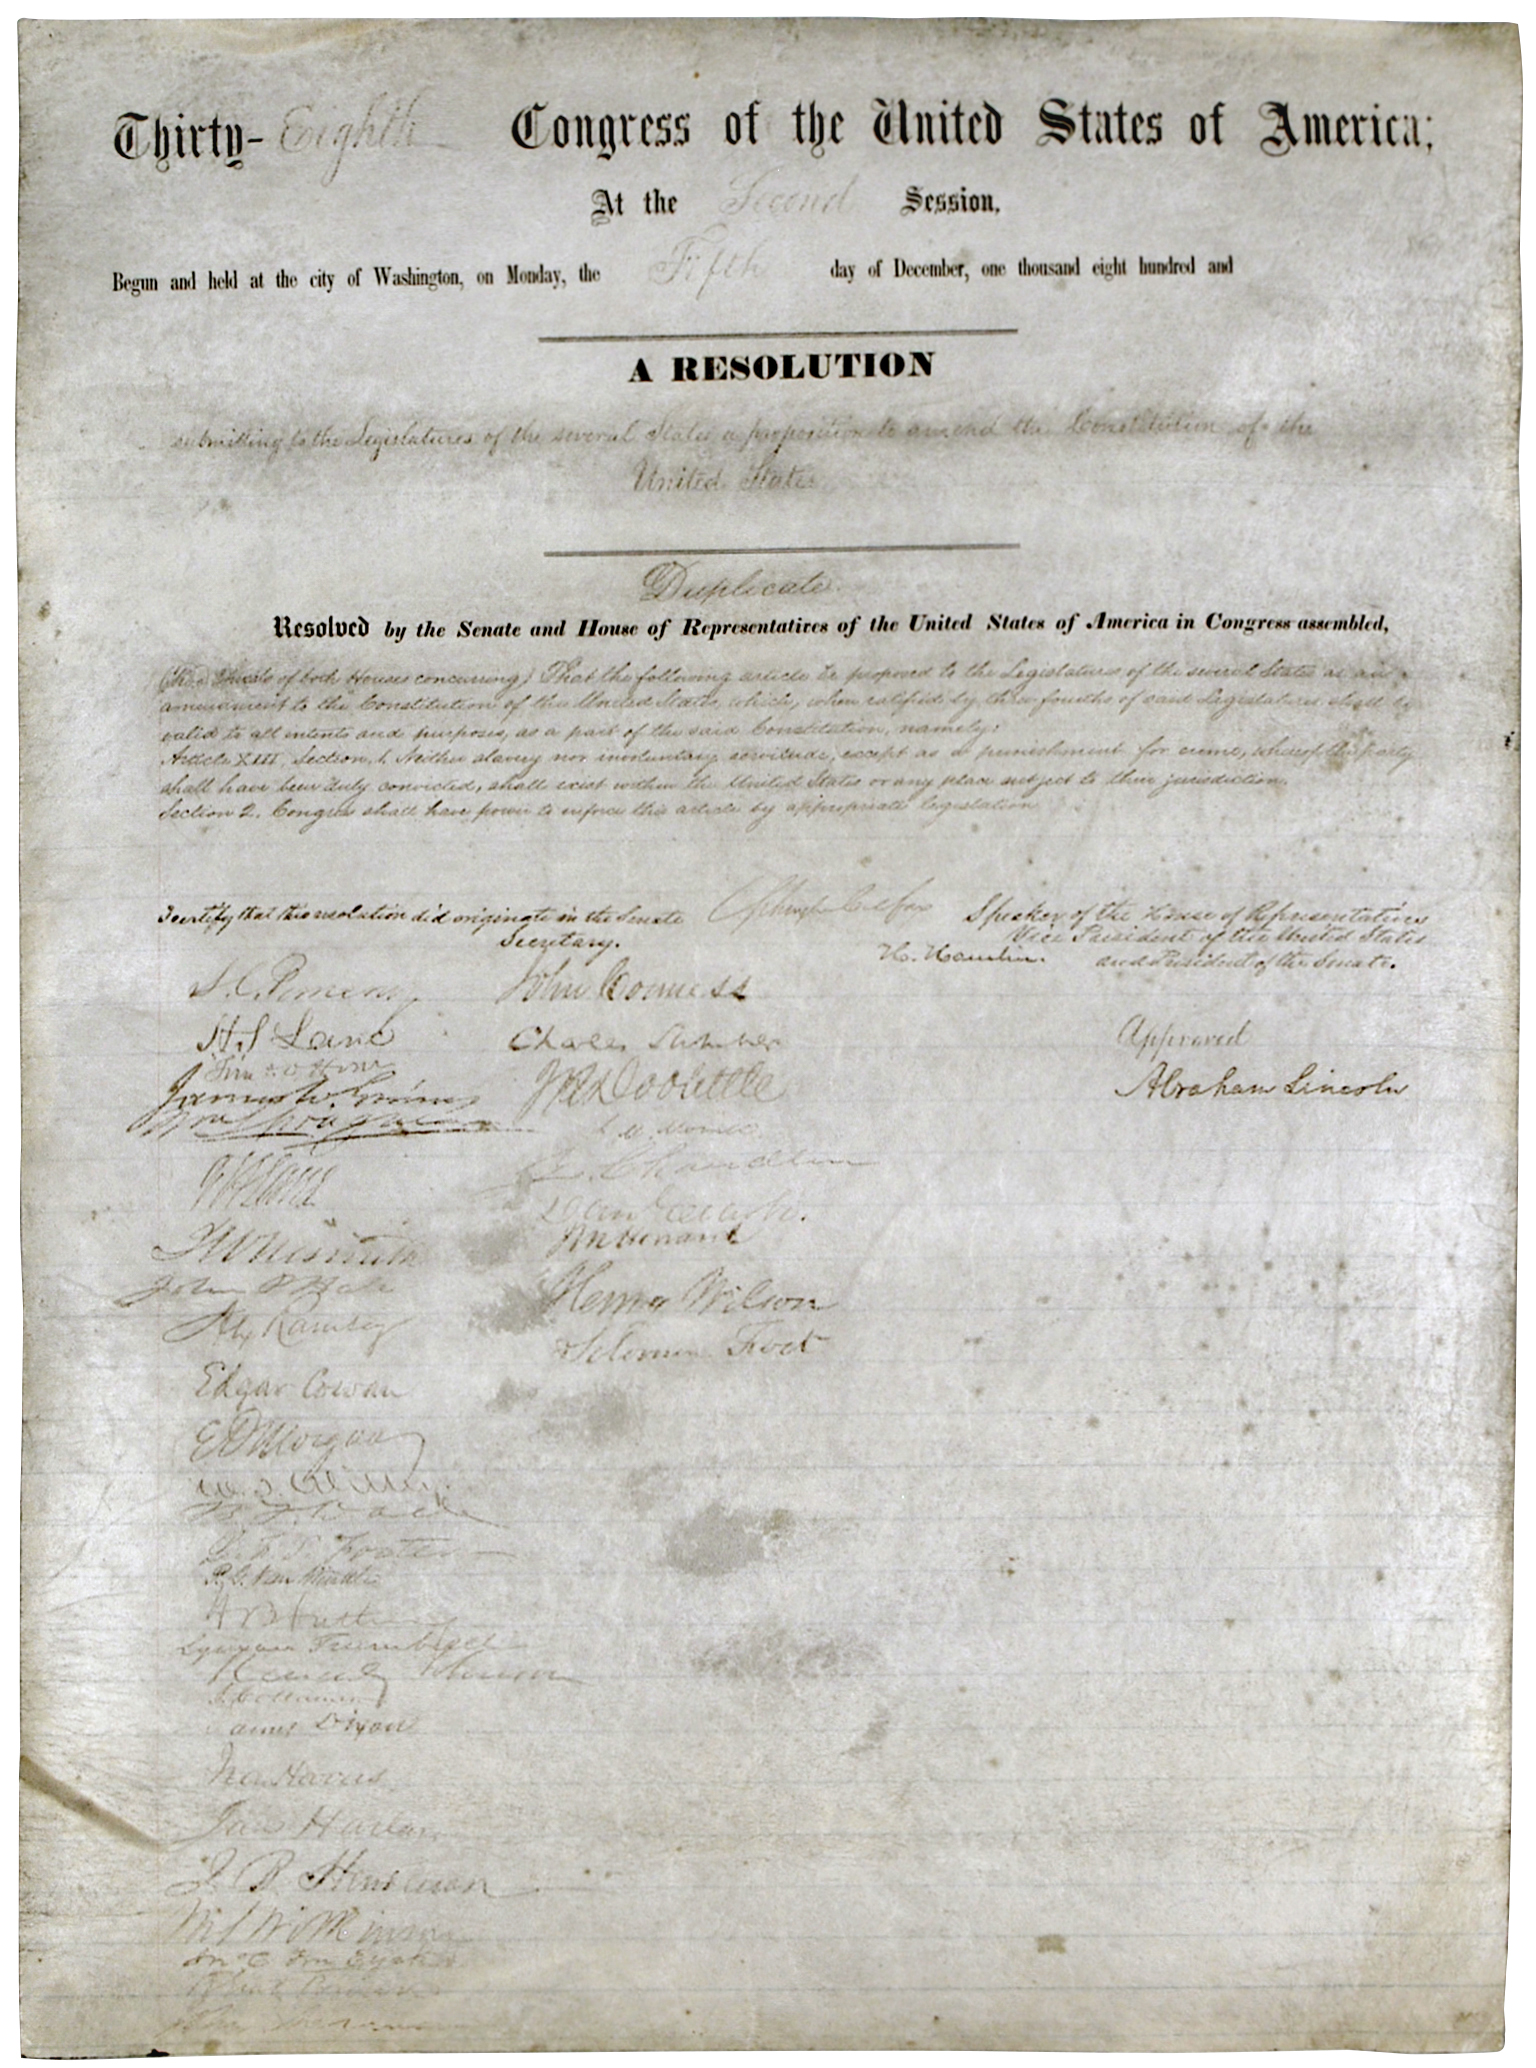 Thirty-Eighth Congress of the United States of America;
At the Second Session,
Begun and held at the city of Washington, on Monday, the Fifth day of December, one thousand eight hundred and
A RESOLUTION
submitting to the Legislatures of the several States a proposition to amend the Constitution of the
United States
Duplicate
Resolved by the Senate and House of Representatives of the United States of America in Congress assembled,
(two thirds of both Houses concurring) That the following article be proposed to the Legislatures of the several States as an
amendment to the Constitution of the United States, which, when ratified by three fourths of said Legislatures shall be
valid to all intents and purposes, as a part of the said Constitution, namely:
Article XIII. Section 1. Neither slavery nor involuntary servitude, except as a punishment for crime, whereof the party
shall have been duly convicted, shall exist within the United States or any place subject to their jurisdiction.
Section 2. Congress shall have power to enforce this article by appropriate legislation
I certify that this resolution did originate in the Senate
Secretary.
Schuyler Colfax
Speaker of the House of Representatives
H. Hamlin.
Vice President of the United States
and President of the Senate.
Approved
Abraham Lincoln
S. C. Pomeroy
H. S. Lane
James W. Grimes
J W Nesmith
John P Hale
Alex Ramsey
Edgar Cowan
E D Morgan
B. F. Wade
L. F. S. Foster
P. G. Van Winkle
Lyman Trumbull
J. Collamer
James Dixon
Ira Harris
Jas Harlan
J. B. Henderson
John Conness
Charles Sumner
J R Doolittle
Z. Chandler
Henry Wilson
Solomon Foot